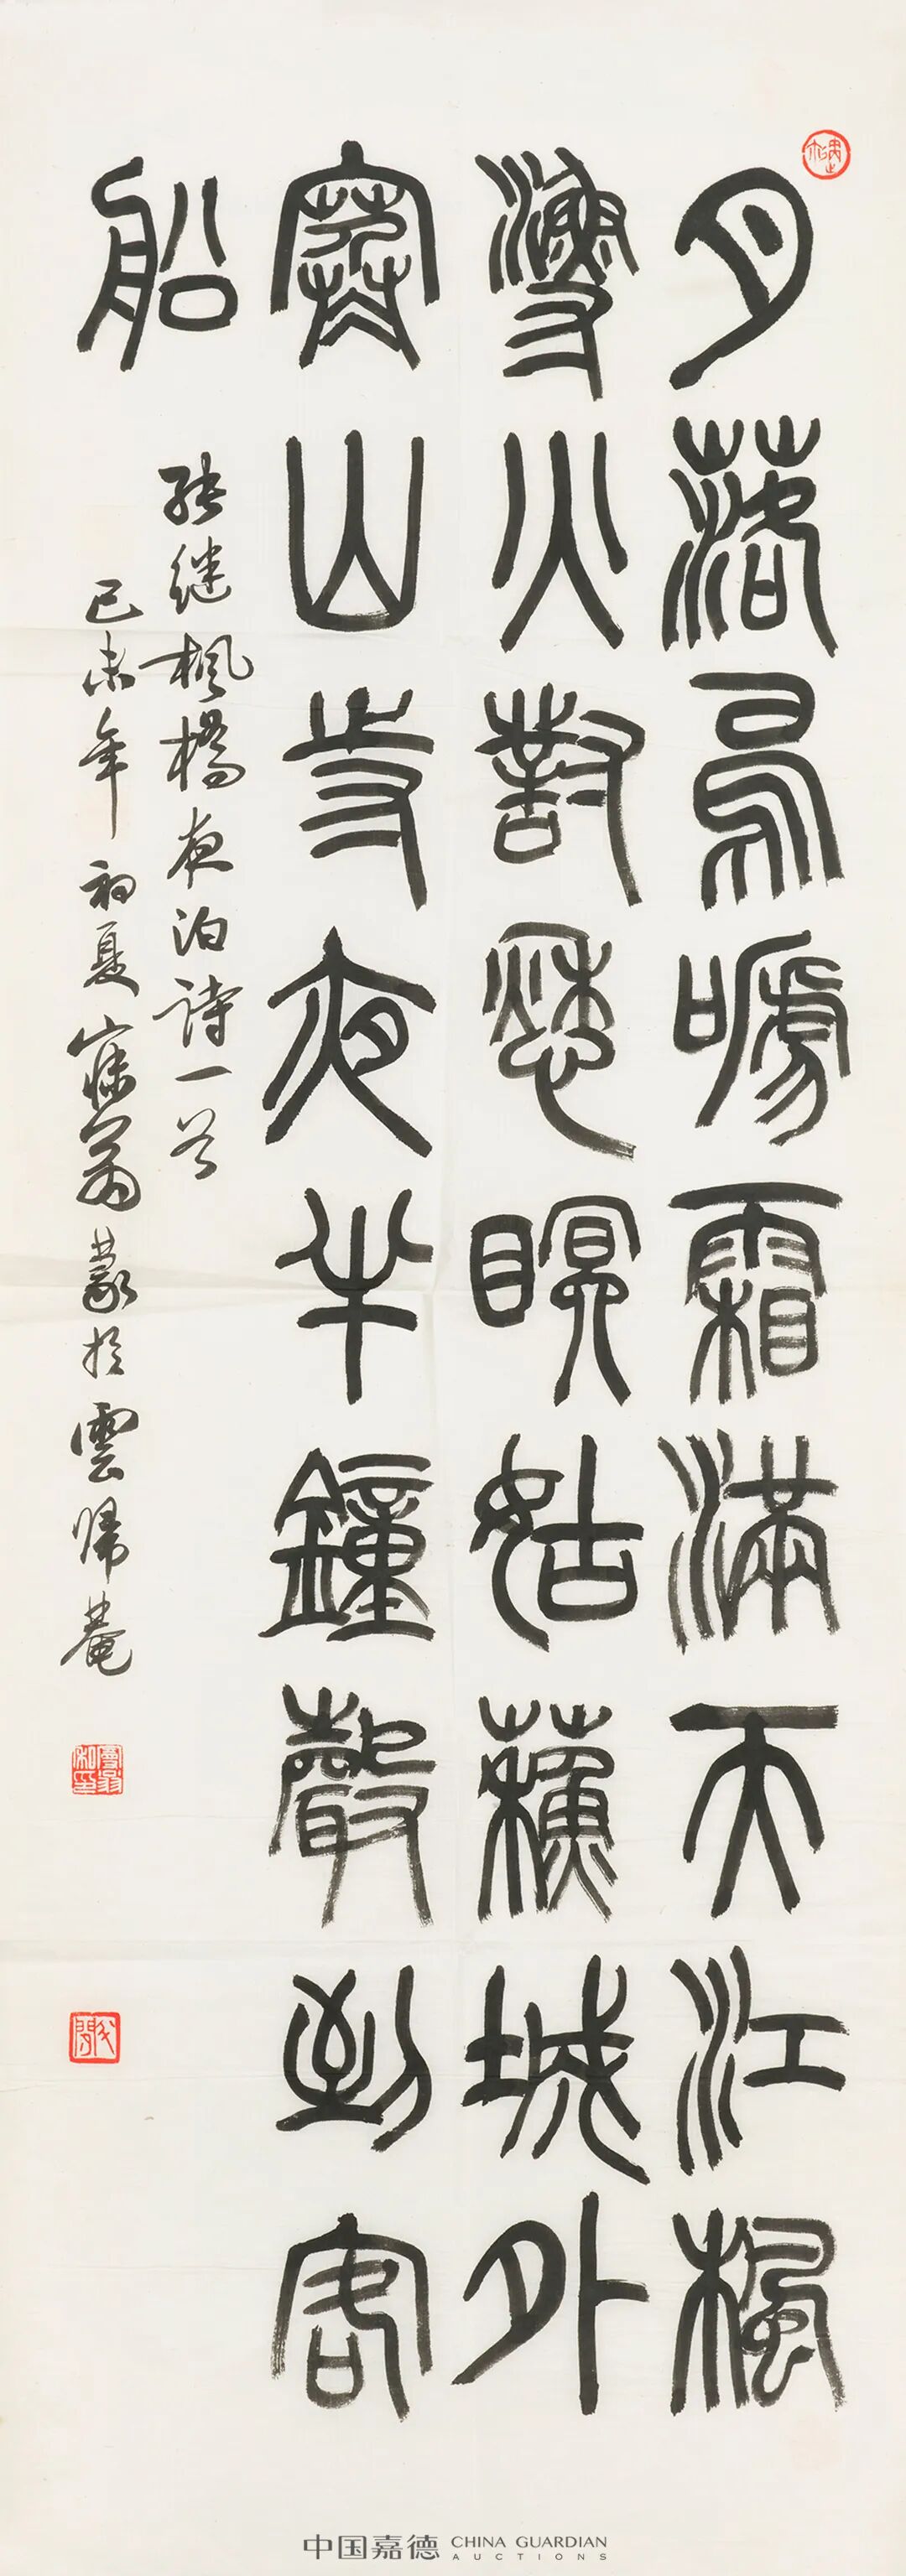 月落烏嗁霜滿天江楓
漁火對愁瞑姑蘇城外
寒山寺夜半鐘聲到客
船
張繼楓橋夜泊詩一首
己未年初夏翁篆於雲歸菴
中国嘉德 CHINA GUARDIAN AUCTIONS